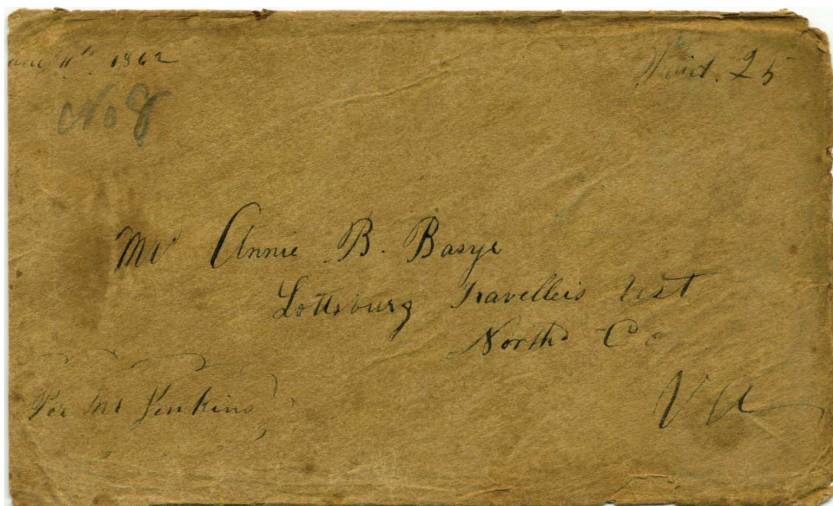 11th 1862
No 8
25
Mrs Annie B. Basye
Lottsburg Travellers Rest
North'd Co
VA
Per Mr Jenkins